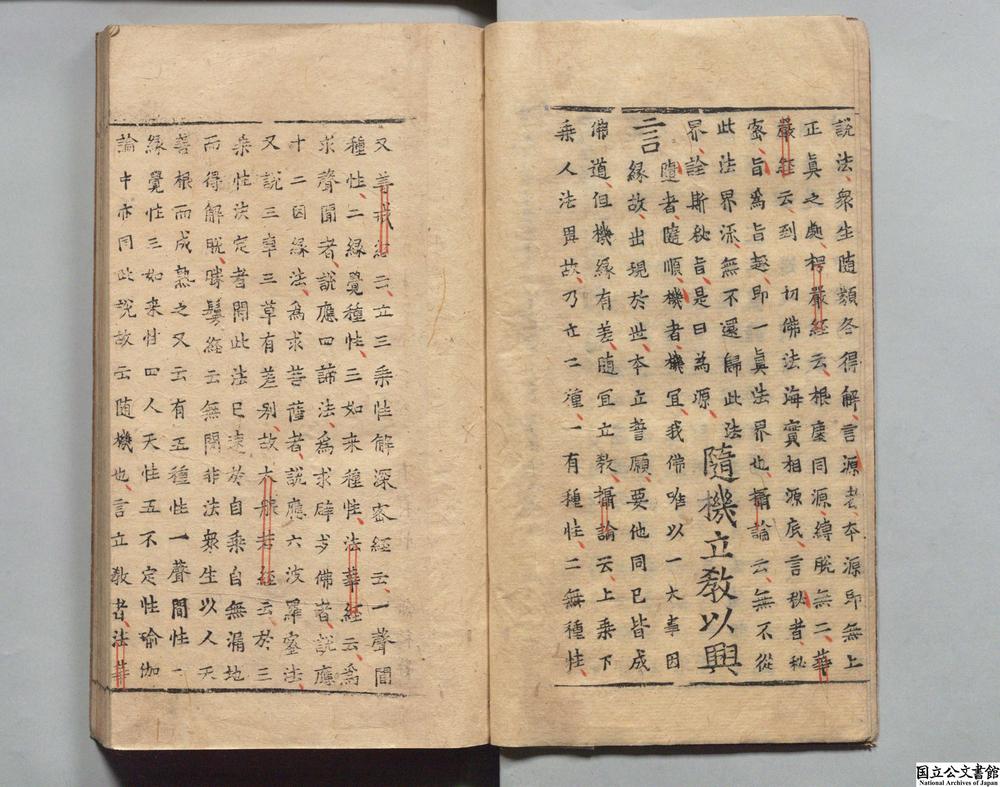 說法衆生随類各得解言源者本源即無上
正真之處楞嚴經云根塵同源縛脫無二華
嚴経云到一切佛法海實相源底言秘者秘
密旨為旨趣即一真法界也攝論云無不從
此法界流無不還歸此法
界詮斯秘旨是曰為源
隨機立教以興
言
隨者隨順機者機宜我佛唯以一大事因
緣故出現於世本立誓願要他同已皆成
佛道但機緣有差随宜立教攝論云上乗下
乗人法異故乃立二種一有種性二無種性
又善戒経云立三乗性解深密經云一聲聞
種性二緣覺種性三如来種性法華経云為
求聲聞者說應四諦法為求辟支佛者說應
十二因緣法為求菩薩者說應六波羅蜜法
又說三車三草有差别故大般若経云於三
乗性決定者聞此法已速於自乗自無漏地
而得解脫勝鬘經云無聞非法衆生以人天
善根而成熟之又云有五種性一聲聞性二
緣覺性三如来性四人天性五不定性瑜伽
論中亦同此說故云随機也言立教者法華
国立公文書館
National Archives of Japan